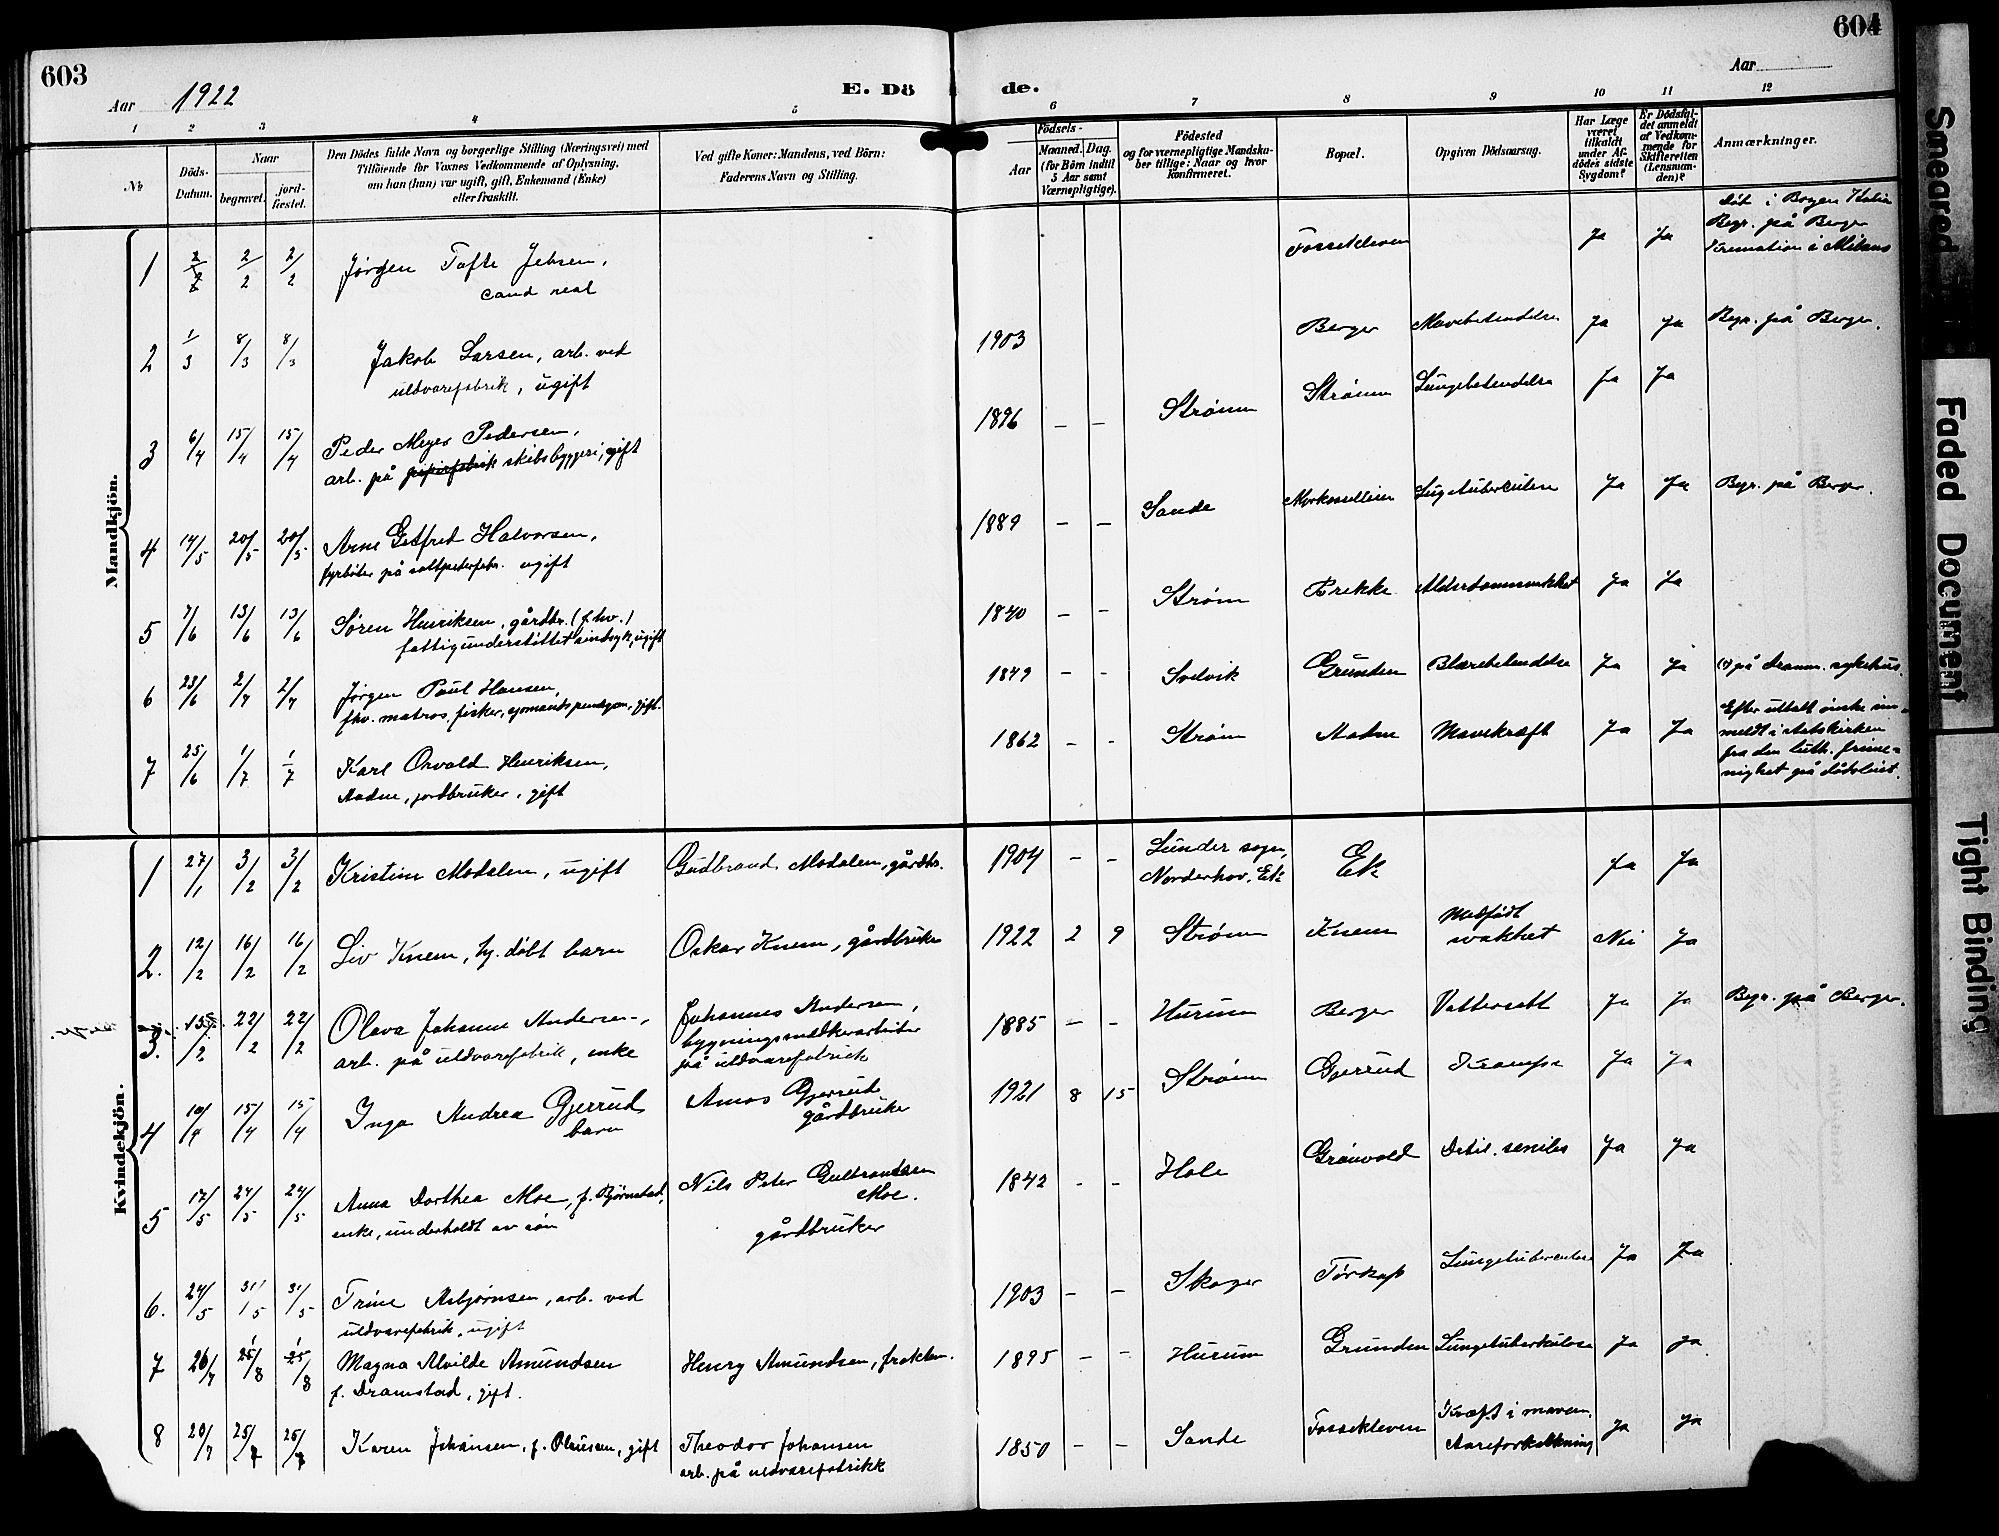 603
Aar 1922
E. Dö
de.
604
Aar
1 2 3 4 5 6 7 8 9 10 11 12
№
Döds-Datum.
Naar
begravet.
jord-fæstet.
Den Dödes fulde Navn og borgerlige Stilling (Næringsvei) med
Tilföiende for Voxnes Vedkommende af Oplysning,
om han (hun) var ugift, gift, Enkemand (Enke)
eller fraskilt.
Ved gifte Koner: Mandens, ved Börn:
Faderens Navn og Stilling.
Födsels-
Aar
Maaned. Dag.
(for Börn indtil
5 Aar samt
Værnepligtige).
Födested
og for værnepligtige Mandska-
ber tillige: Naar og hvor
konfirmeret.
Bopæl.
Opgiven Dödsaarsag.
Har Læge
været
tilkaldt
under Af-
dödes sidste
Sygdom?
Er Dödsfal-
det anmeldt
af Vedkom-
mende for
Skifteretten
(Lensman-
den)?
Anmærkninger.
Mandkjön.
1 2/2 2/2 Jørgen Tofte Jebsen,
cand real
Fossekleven Ja Ja
Død i Bozen Italia
Begr. på Berger
Kremation i Milano
2 1/3 8/3 8/3 Jakob Larsen, arb. ved
uldvarefabrik, ugift
1903 Berger Mavebetendelse Ja Ja Begr. på Berger.
3 6/4 15/4 15/4 Peder Meyer Pedersen,
arb. på papirfabrik skibsbyggeri, gift
1896 - - Strømm Strømm Lungebetendelse Ja Ja
4 14/5 20/5 20/5 Arne Gotfred Halvorsen,
fyrbøter på saltpeterfabr. ugift
1889 - - Sande Lugetuberkulose Ja Ja Begr. på Berger.
5 7/6 13/6 13/6 Søren Henriksen, gårdbr. (fhv.)
fattigunderstøttet sindsyk, ugift
1840 - - Strøm Brekke Alderdomssvakhet Ja Ja
6 23/6 2/7 2/7 Jørgen Paul Hansen,
fhv. matros, fisker, sjomandspensjon, gift.
1849 - - Svelvik Grunden Blærebetendelse Ja Ja (†) på Dramm. sykehus.
7 25/6 1/7 1/7 Karl Osvald Henriksen,
Aadne, jordbruker, gift
1862 - - Strøm Aadne Mavekræft Ja Ja
Efter uttalt ønske inn-
meldt i statskirken
fra den luth. frime-
nighet på dødsleiet.
Kvindekjön.
1 27/1 3/2 3/2 Kristine Modalen, ugift Gudbrand Modalen, gårdbr.
1904 - - Lunder sogn,
Norderhov. Ek Ja Ja
2. 12/2 16/2 16/2 Liv Knem, hj. døbt barn Oskar Knem, gårdbruker
1922 2 9 Strømm Knem Medfødt
svakhet Nei Ja
3. 15/2 22/2 22/2 Olava Johanne Andersen,
arb. på uldvarefabrik, enke
Johannes Andersen,
på uldvarefabrick
1885 - - Hurum Berger Vattersott Ja Ja Begr. på Berger.
4 10/4 15/4 15/4 Inga Andrea Gjerrud
barn
Amos Gjerrud
gårdbruker
1921 8 15 Strømm Gjerrud Krampe Ja Ja
5 17/5 24/5 24/5 Anna Dorthea Moe, f. Bjørnstad,
enke, underholdt av søn
Nils Peter Gulbrandsen
Moe.
gårdbruker
1842 - - Hole Grønvold Debil. senilis Ja Ja
6. 24/5 31/5 31/5 Trine Asbjørnsen, arb. ved
uldvarefabrik, ugift
1903 - - Skoger Tørkop Lungetuberculose Ja Ja
7 26/7 1/8 1/8 Magna Alvilde Amundsen
f. Dramstad, gift.
Henry Amundsen,
1895 - - Hurum Grunden Lungetuberkulose Ja Ja
8 20/7 25/7 25/7 Karen Johansen, f. Olausen, gift
Theodor Johansen
arb. på uldvarefabrikk
1850 - - Sande Fossekleven Kræft i maven.
Aareforkalkning Ja Ja
Smeared
Faded Document
Tight Binding